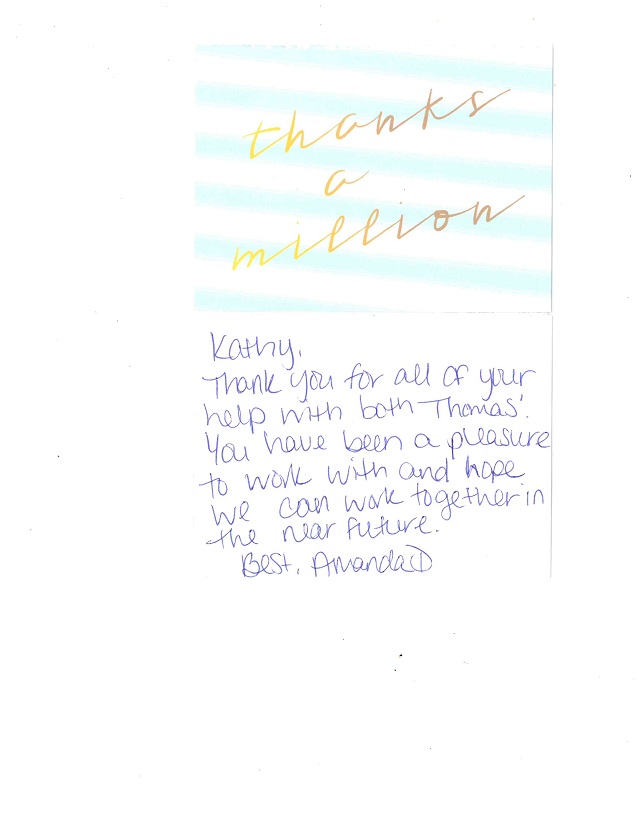 thanks
a
million
Kathy,
Thank you for all of your
help with both Thomas'.
You have been a pleasure
to work with and hope
we can work together in
the near future.
Best, Amanda D